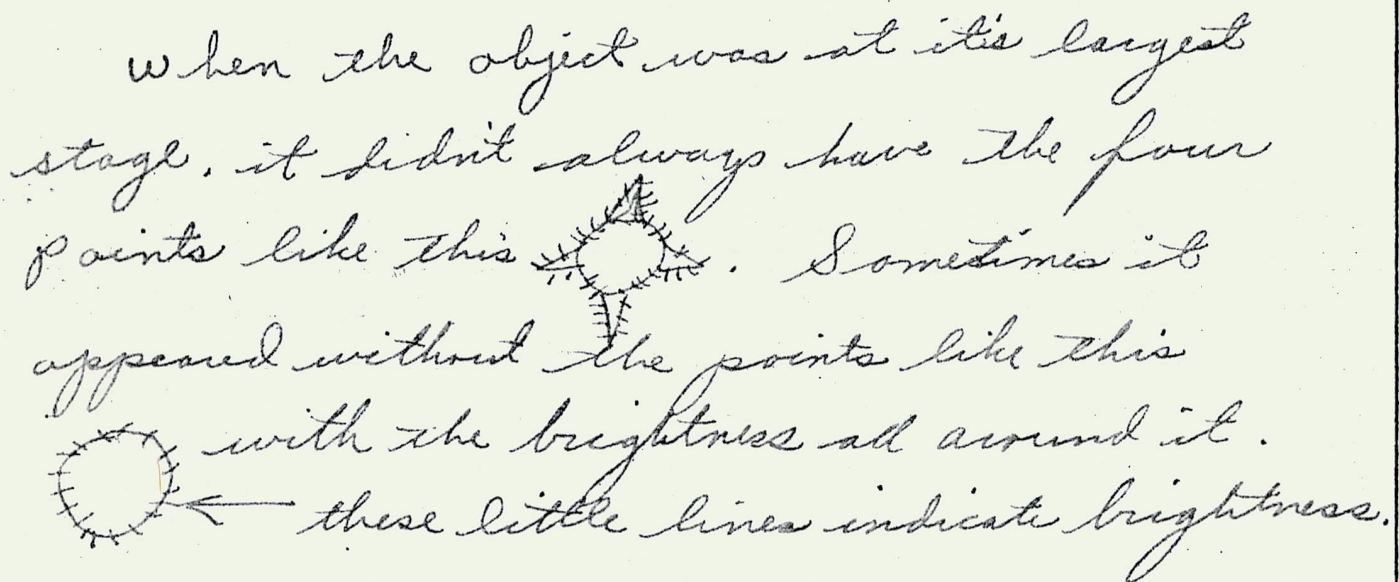 When the object was at it's largest
stage, it didn't always have the four
points like this . Sometimes it
appeared without the points like this
with the brightness all around it.
these little lines indicate brightness.